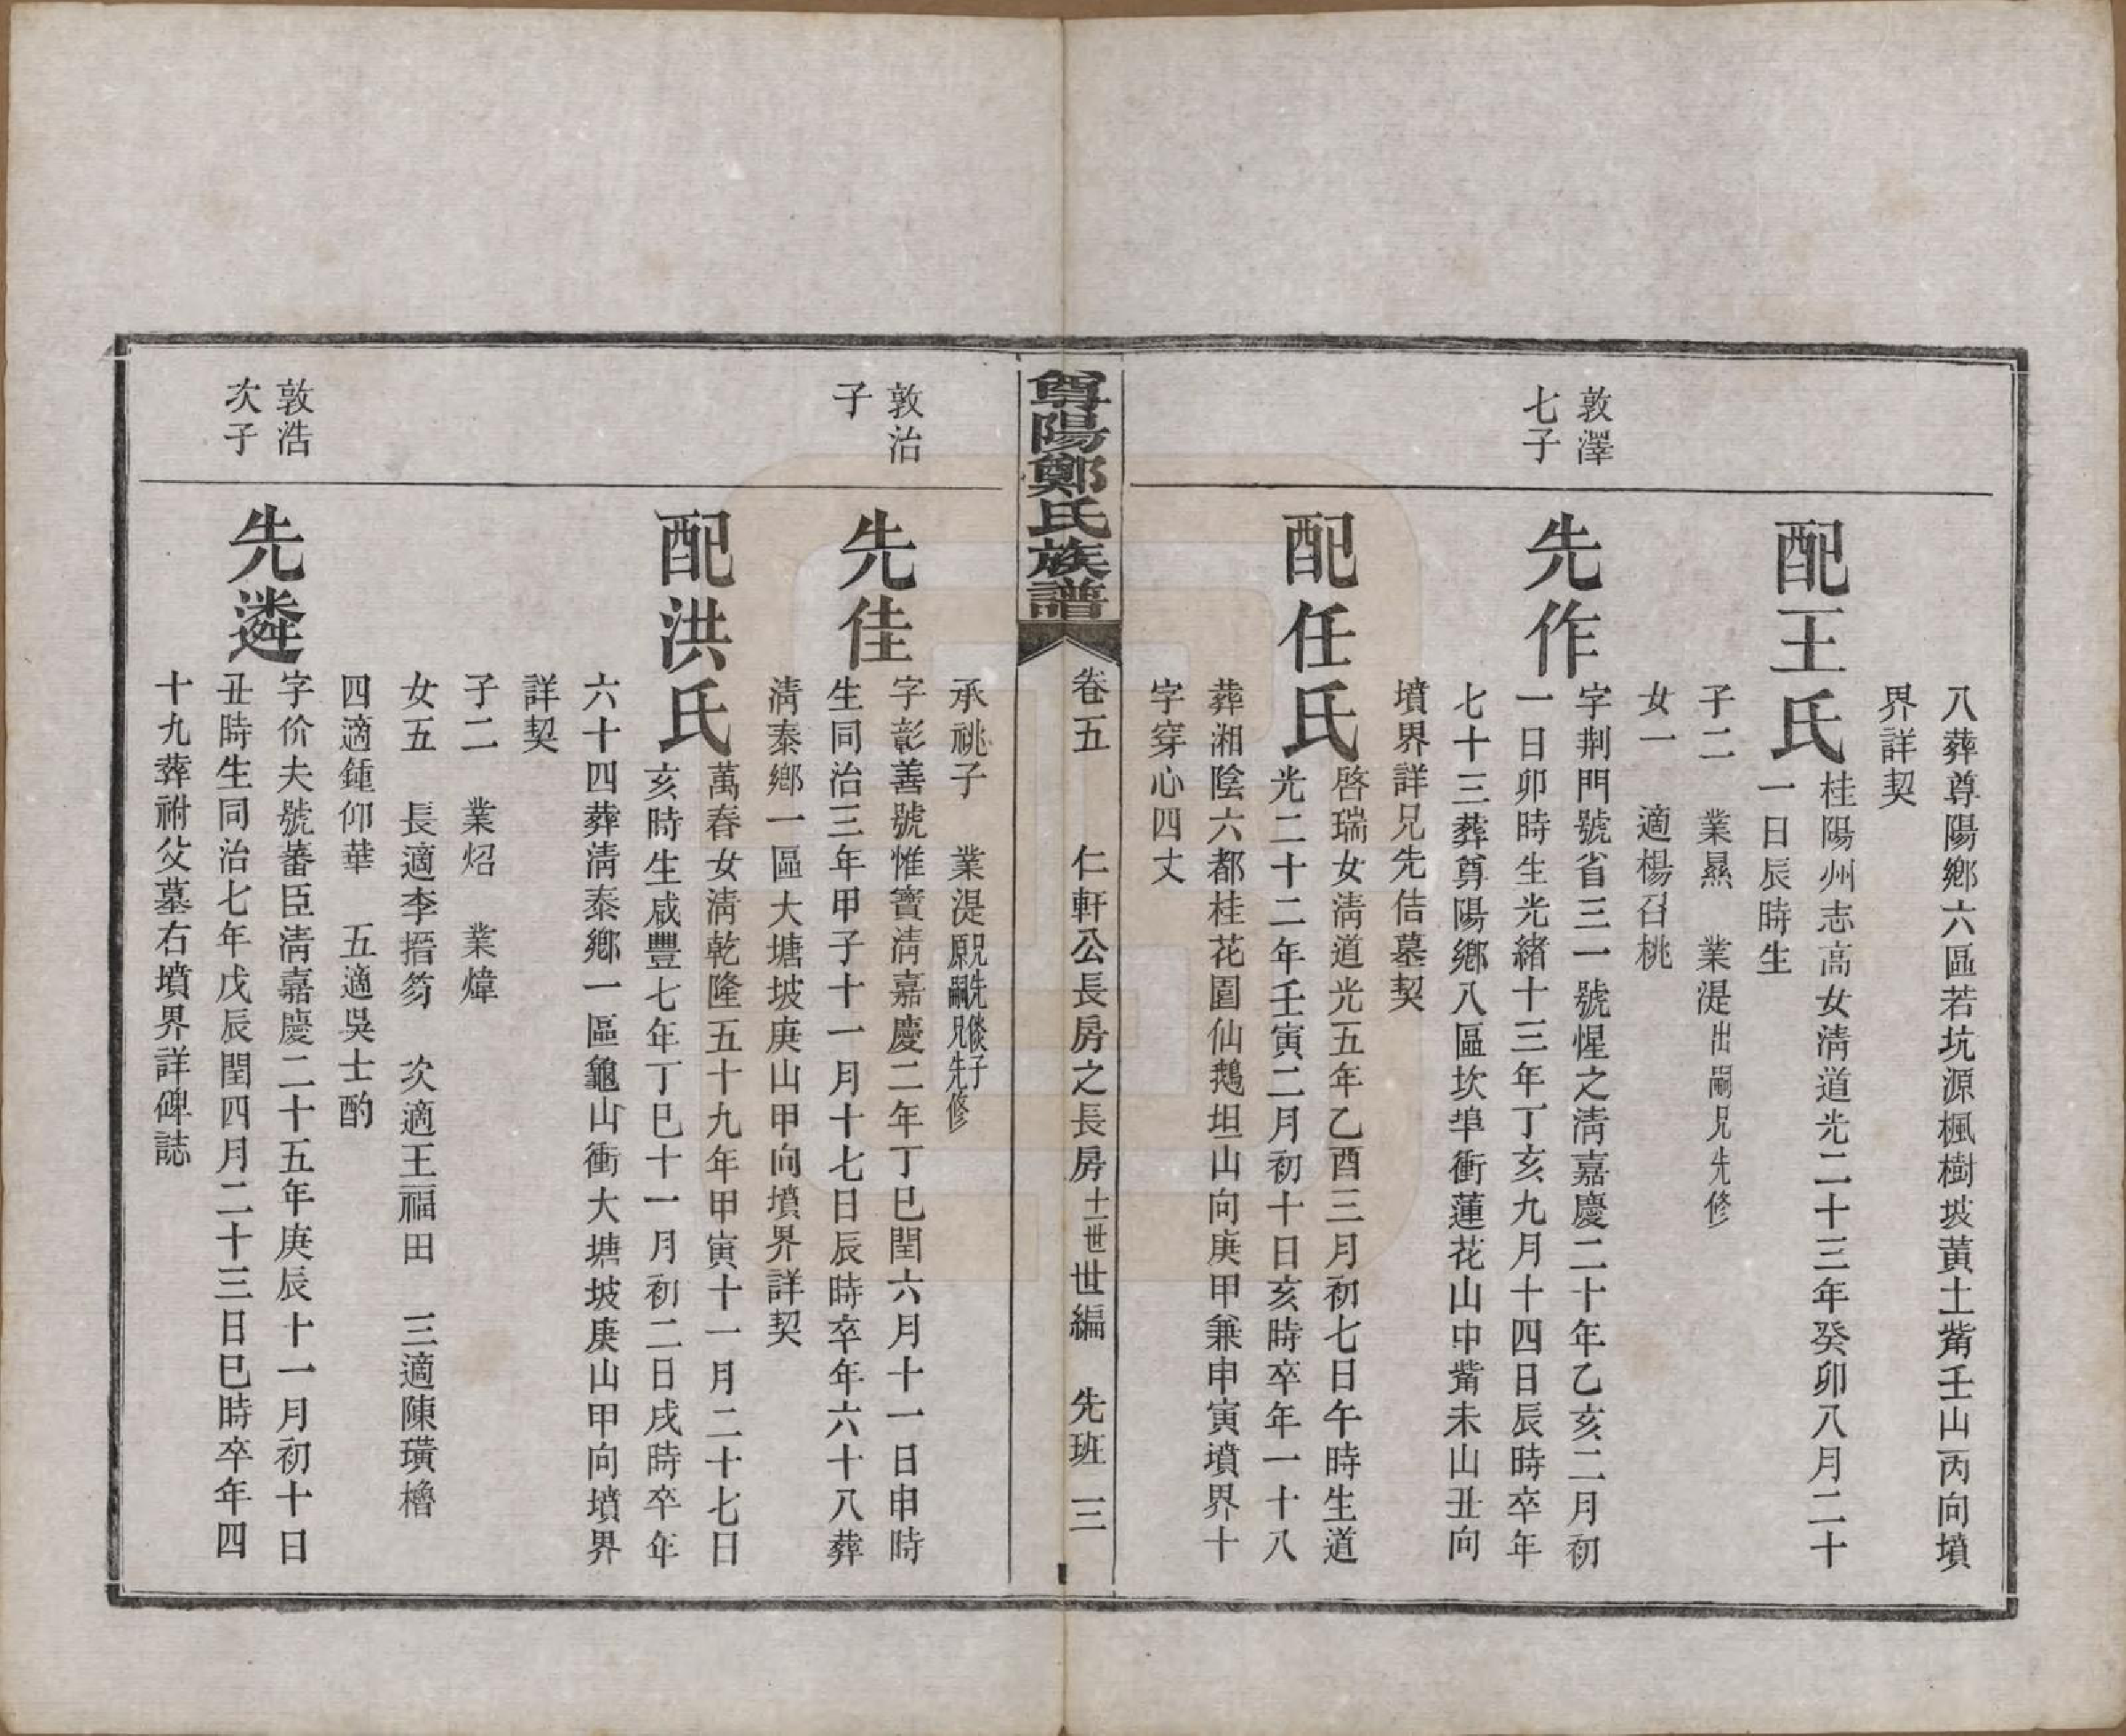 八葬尊陽鄉六區若坑源楓樹坡黃土觜壬山丙向墳
界詳契
配王氏
桂陽州志高女淸道光二十三年癸卯八月二十
一日辰時生
子二　業㬎　業湜出嗣兄先修
女一　適楊召桃
敦澤
七子
先作
字荆門號省三一號惺之淸嘉慶二十年乙亥二月初
一日卯時生光緒十三年丁亥九月十四日辰時卒年
七十三葬尊陽鄉八區坎埠衝蓮花山中觜未山丑向
墳界詳兄先佶墓契
配任氏
啓瑞女淸道光五年乙酉三月初七日午時生道
光二十二年壬寅二月初十日亥時卒年一十八
葬湘陰六都桂花園仙鵝坦山向庚甲兼申寅墳界十
字穿心四丈
尊陽鄭氏族譜
卷五　仁軒公長房之長房十一世世編　先班　三
承祧子　業湜原兄先倓子嗣兄先修
敦治
子
先佳
字彰善號惟寶淸嘉慶二年丁巳閏六月十一日申時
生同治三年甲子十一月十七日辰時卒年六十八葬
淸泰鄉一區大塘坡庚山甲向墳界詳契
配洪氏
萬春女淸乾隆五十九年甲寅十一月二十七日
亥時生咸豐七年丁巳十一月初二日戌時卒年
六十四葬淸泰鄉一區龜山衝大塘坡庚山甲向墳界
詳契
子二　業炤　業煒
女五　長適李搢笏　次適王福田　三適陳璜櫓
四適鍾仰華　五適吳士酌
敦浩
次子
先遴
字价夫號蕃臣淸嘉慶二十五年庚辰十一月初十日
丑時生同治七年戊辰閏四月二十三日巳時卒年四
十九葬祔父墓右墳界詳碑誌